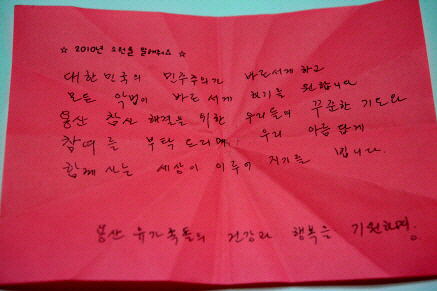 ☆ 2010년 소원을 말해봐요 ☆
대한민국의 민주주의가 바로서게 하고
모든 악법이 바로 서게 하기를 원합니다
용산 참사 해결을 위한 우리들의 꾸준한 기도와
참여를 부탁 드리며, 우리 아름답게
함께 사는 세상이 이루어 지기를 빕니다.
용산 유가족들의 건강과 행복을 기원하며.